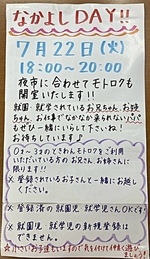 なかよしDAY!!
7月22日(火)
18:00~20:00
夜市に合わせてモトロクも
開室いたします!!
就園・就学されているお兄ちゃん、お姉
ちゃん、お仕事でなかなか来られないパパ
もぜひ一緒にいらして下さいね!
お待ちしています♪
0才~3才のてくわんモトロクをご利用
いただいている方のお兄さん、お姉さんに
限ります!!
※登録されているお子さんと一緒にお越し
ください。
※登録済の就園児、就学児さんOKです!
※就園児、就学児の新規登録は
できません。
☆小さいお子達もいますので気を付けて仲良く遊び
ましょう!